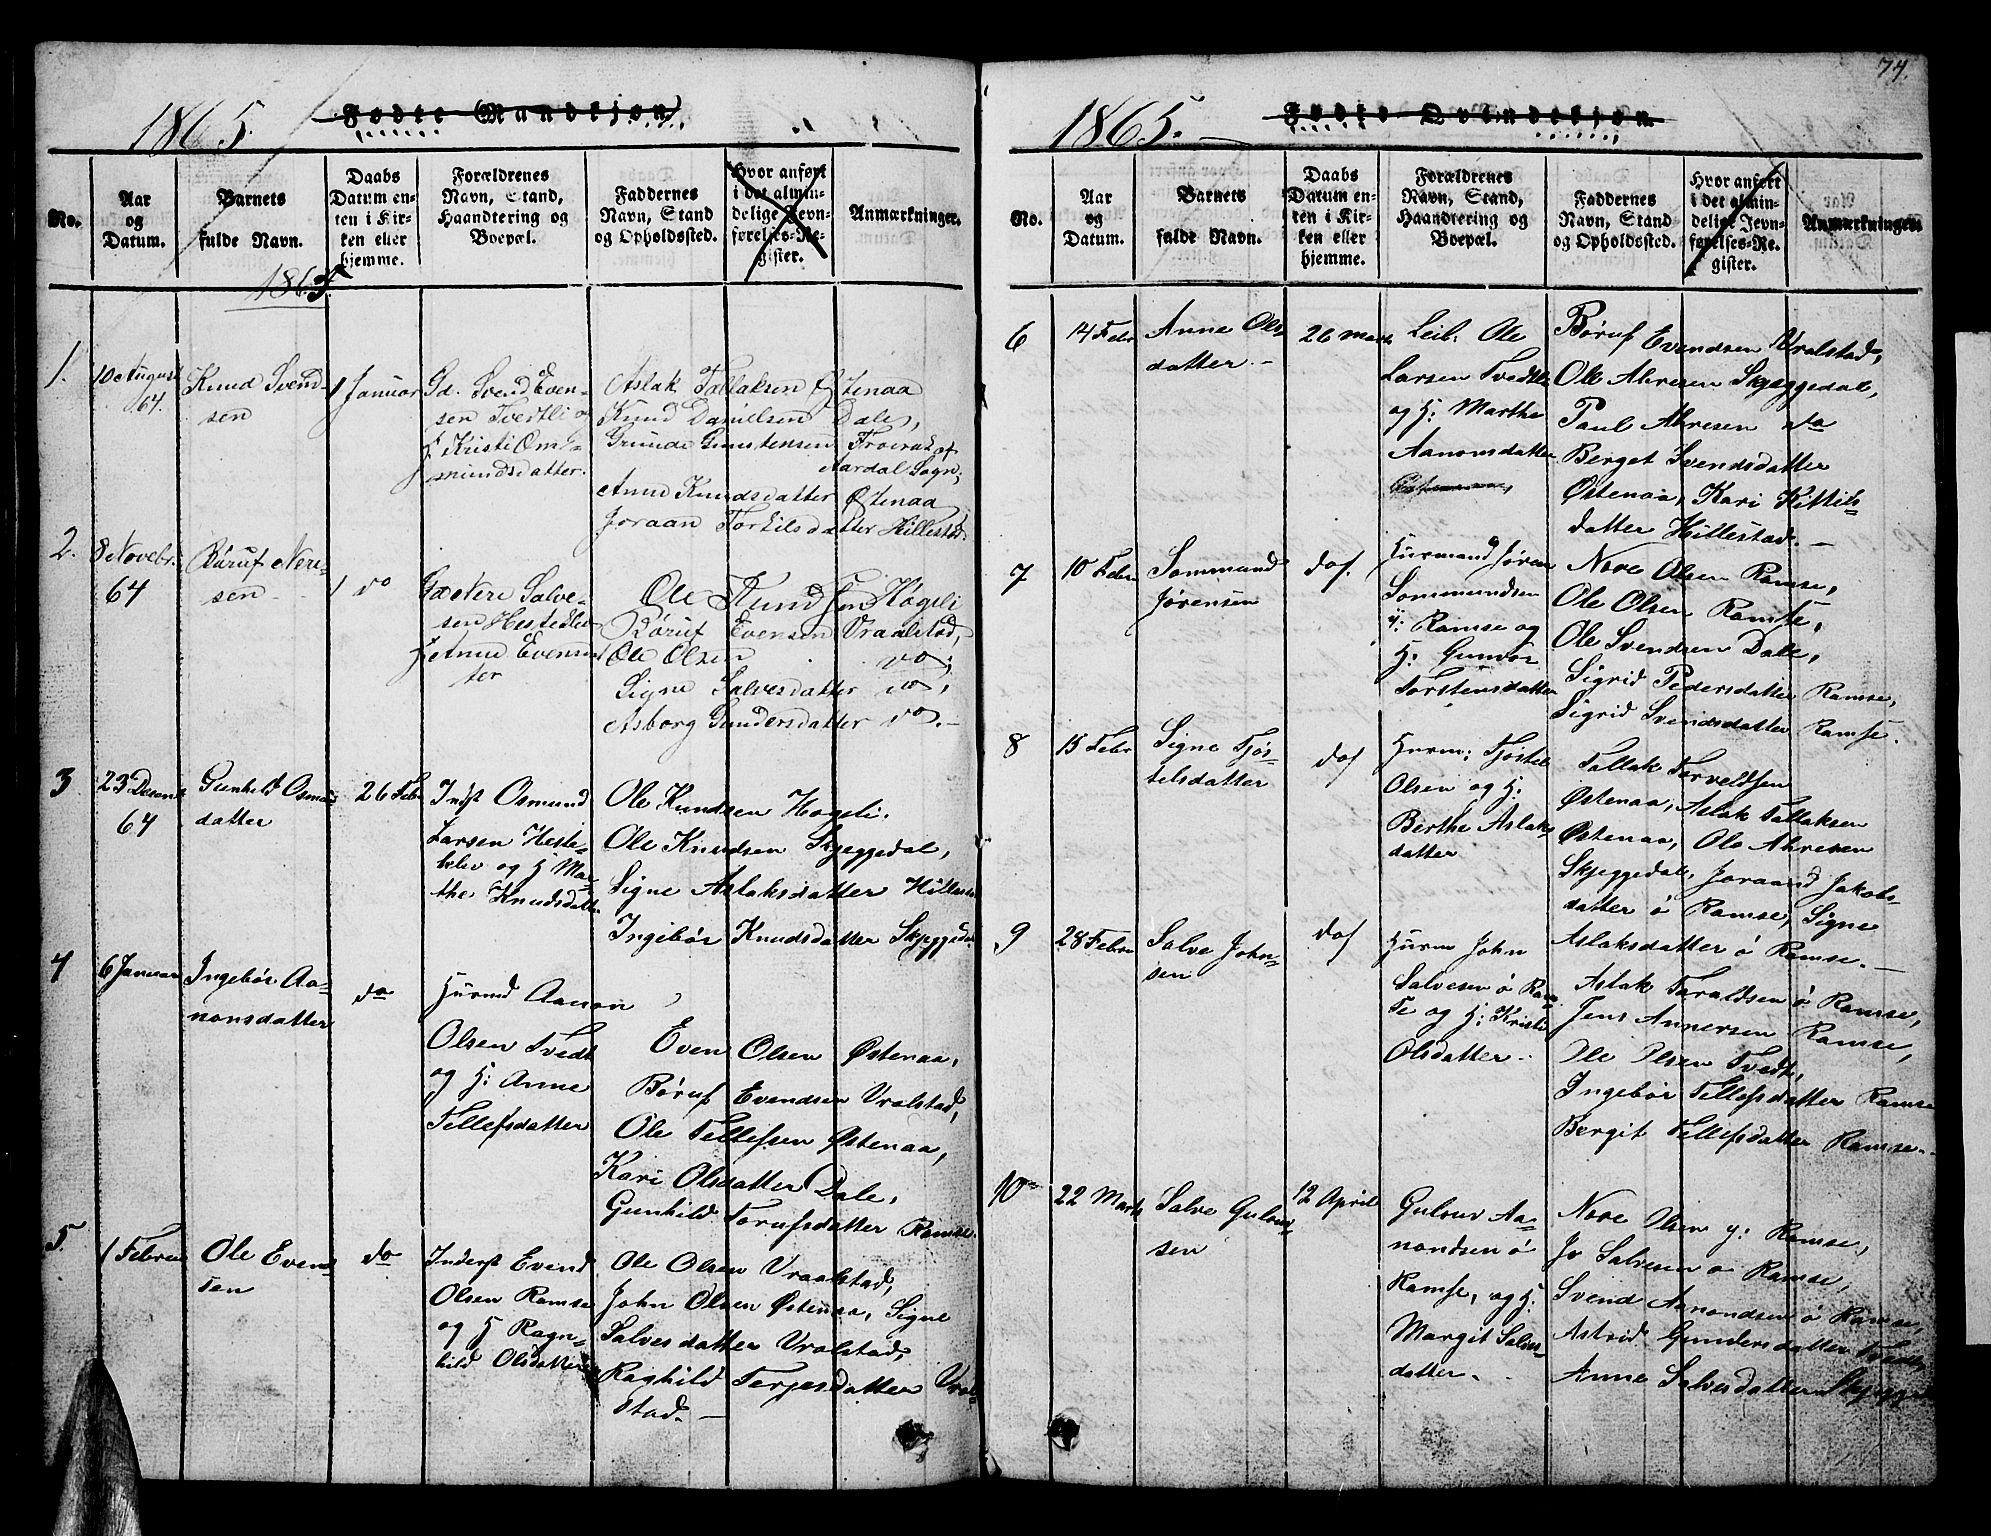 1865. Fødte Mandkjøn.
No.
Aar og Datum.
Barnets fulde Navn.
Daabs Datum enten i Kirken eller hjemme.
Forældrenes Navn, Stand, Haandtering og Boepæl.
Faddernes Navn, Stand og Opholdssted.
Hvor anført i det almindelige Jevnførelses-Register.
Anmærkninger.
1865.
1.
10 August
64.
Knud Svend-
sen
1 Januar
Gd. Svend Even-
sen Tvedtli og
H Kristi Om-
mundsdatter.
Aslak Tallaksen Østenaa
Knud Danielsen Dale,
Grunde Gunstensen
Aardal Sogn,
Anne Knudsdatter Østenaa
Joraan Torkilsdatter Hillestad.
2.
8 Novebr.
64
Børuf Nere-
sen
1 do
Nere Salve-
sen
H Anne Evens
ter
Ole Knudsen Hogeli
Børuf Evensen Vraalstad,
Ole Olsen do,
Signe Salvesdatter do,
Asborg Gundersdatter do.-
3
23 Decemb
64
Gunhild Osmun
datter
26 Febr
Indst Osmund
Larsen Heste-
klev og H Mar-
the Knudsdatter
Ole Knudsen Hogeli.
Ole Knudsen Skjeggedal,
Signe Aslaksdatter Hillesta
Ingebör Knudsdatter Skjeggeda
4
6 Januar
Ingebör Aa-
nonsdatter
do
Hurmd Aanon
Olsen Tvedt
og H: Anne
Tellefsdatter
Even Olsen Østenaa,
Børuf Evendsen Vralstad,
Ole Tellefsen Østenaa,
Kari Olsdatter Dale,
Gunhild Torufsdatter Ramse.
5.
1 Febru
Ole Evend
sen
do
Inderst Evend
Olsen Ramse
og H Ragn-
hild Olsdatter
Ole Olsen Vraalstad,
John Olsen Østenaa, Signe
Salvesdatter Vralstad,
Raghild Terjesdatter Vral-
stad.-
74.
1865. Fødte Qvindekjøn.
No.
Aar og Datum.
Barnets fulde Navn.
Daabs Datum enten i Kirken eller hjemme.
Forældrenes Navn, Stand, Haandtering og Boepæl.
Faddernes Navn, Stand og Opholdssted.
Hvor anført i det almindelige Jevnførelses-Register.
Anmærkninger.
6
14 Febr
Anne Ols-
datter.-
26 Marts
Leil: Ole
Larsen Tvedtli
og H: Marthe
Aanonsdatter
Børuf Evendsen Vralstad,
Ole Akresen Skjeggedal,
Paul Akresen do
Berget Svendsdatter
Østenaa, Kari Kittils-
datter Hillestad.-
7
10 Febr
Sommund
Jörensen
do.
Hurmand Jören
Sommundsen
y: Ramse og
H: Gunvor
Torstensdatter
Nore Olsen Ramse,
Ole Olsen Ramse,
Ole Svendsen Dale,
Sigrid Pedersdatter Ramse,
Sigrid Svendsdatter Ramse.
8
15 Febr
Signe Tjøs-
telsdatter
do
Hurm: Tjöstel
Olsen og H:
Berthe Aslaks
datter
Tallak Torveldsen
Østenaa, Aslak Tallaksen
Østenaa, Ole Akresen
Skjeggedal, Joraand Jakobs-
datter ö Ramse, Signe
Aslaksdatter ö Ramse.-
9
28 Febr
Salve John-
sen
do
Hurm John
Salvesen ö Ram
se og H: Kristi
Olsdatter.
Aslak Taraldsen ö Ramse,
Jens Annersen Ramse,
Ole Olsen Tvedt,
Ingebör Tellefsdatter Ramse
Bergit Tellefsdatter Ramse.-
10
22 Marts
Salve Gulouv-
sen
12 April
Gulouv Aa-
nondsen ö
Ramse, og H:
Margit Salves-
datter.
Nore Olsen y: Ramse,
Jo Salvesen ö Ramse,
Svend Aanondsen ö Ramse,
Astrid Gundersdatter Tvedt
Anne Salvesdatter